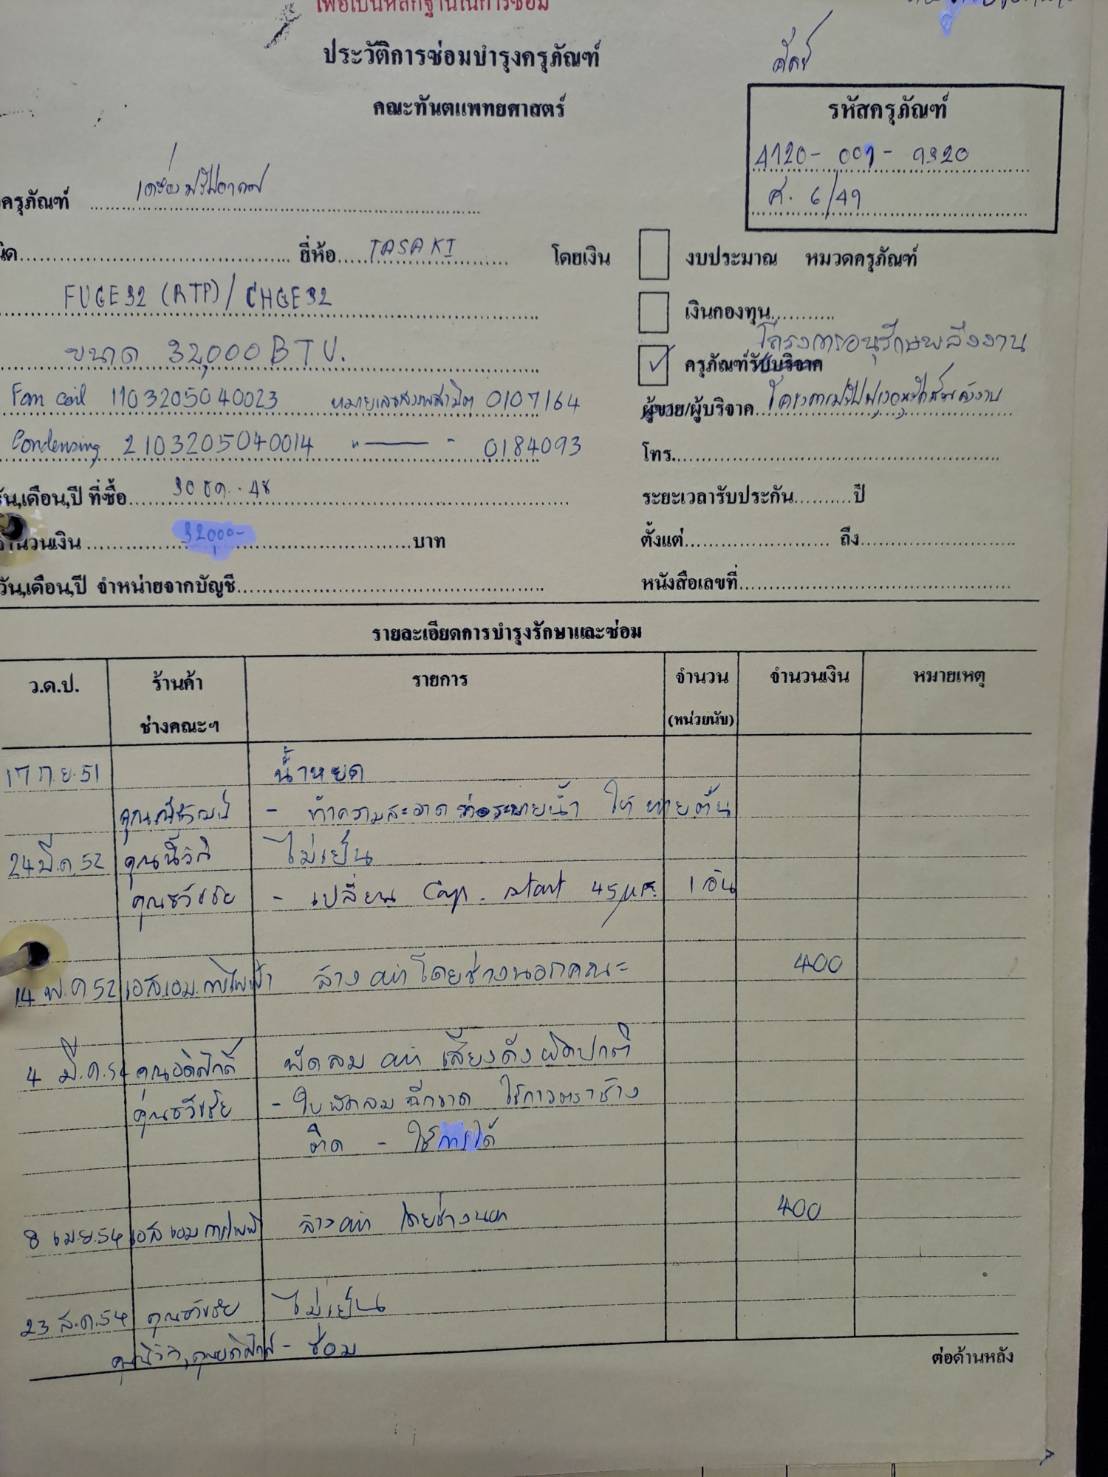 เพื่อเป็นหลักฐานในการซ่อม
ประวัติการซ่อมบำรุงครุภัณฑ์
คณะทันตแพทยศาสตร์
รหัสครุภัณฑ์
4120-001-1320
ศ. 6/49
ครุภัณฑ์ เครื่องปรับอากาศ
ยี่ห้อ TASAKI โดยเงิน งบประมาณ หมวดครุภัณฑ์
FUGE32 (RTP) / CHGE32
เงินกองทุน
โครงการอนุรักษ์พลังงาน
ขนาด 32,000 BTU.
ครุภัณฑ์รับบริจาค
Fan coil 1103205040023 0107164
ผู้ขาย/ผู้บริจาค
Condensing 2103205040014 " —— " 0184093
โทร.
วัน,เดือน,ปี ที่ซื้อ 30 ธค. 48
ระยะเวลารับประกัน ปี
จำนวนเงิน 32,000- บาท
ตั้งแต่ ถึง
วัน,เดือน,ปี จำหน่ายจากบัญชี
หนังสือเลขที่
รายละเอียดการบำรุงรักษาและซ่อม
ว.ด.ป. ร้านค้า รายการ จำนวน จำนวนเงิน หมายเหตุ
ช่างคณะฯ (หน่วยนับ)
17 ก.ย. 51 น้ำหยด
- ทำความสะอาด ท่อระบายน้ำ ให้ หายตัน
24 มี.ค. 52 ไม่เย็น
คุณธวัชชัย - เปลี่ยน Cap. start 45 µF. 1 อัน
14 พ.ค 52 เอส.เอม.การไฟฟ้า ล้าง แอร์ โดยช่างนอกคณะ 400
4 มี.ค. 54 คุณอดิศักดิ์ พัดลม แอร์ เสียงดังผิดปกติ
คุณธวัชชัย - ใบพัดลม ฉีกขาด ใช้กาวตราช้าง
ติด - ใช้การได้
8 เม.ย. 54 เอส เอม การไฟฟ้า ล้าง แอร์ โดยช่างนอก 400
23 ส.ค. 54 คุณธวัชชัย ไม่เย็น
- ซ่อม
ต่อด้านหลัง